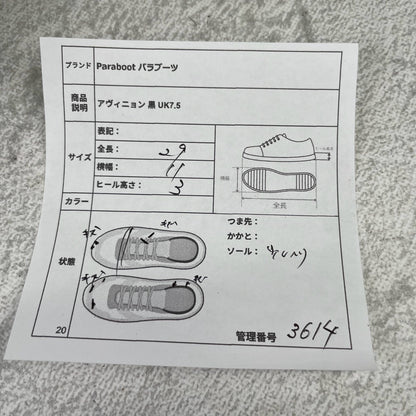 ブランド Paraboot パラブーツ
商品説明 アヴィニョン 黒 UK7.5
サイズ
表記：
全長： 29
横幅： 11
ヒール高さ： 3
ヒール高さ
横幅
全長
カラー
状態
つま先：
かかと：
ソール：
キズ
キズ
20
管理番号 3614